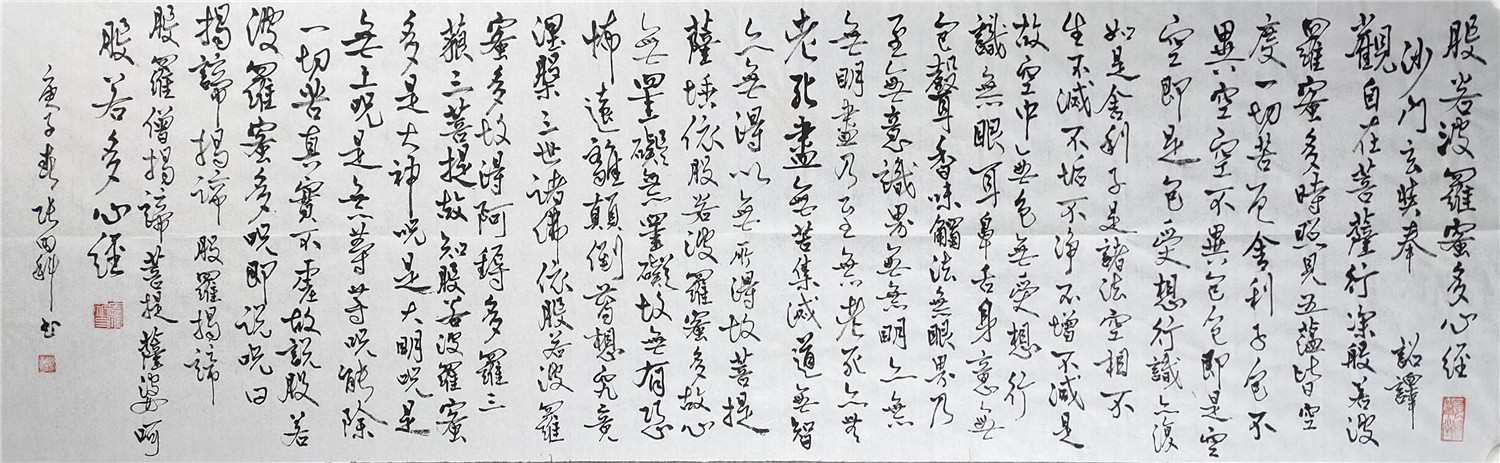 般若波羅蜜多心經
沙門玄奘奉 詔譯
觀自在菩薩行深般若波
羅蜜多時照見五蘊皆空
度一切苦厄舍利子色不
異空空不異色色即是空
空即是色受想行識亦復
如是舍利子是諸法空相不
生不滅不垢不淨不增不減是
故空中無色無受想行
識無眼耳鼻舌身意無
色聲香味觸法無眼界乃
至無意識界無無明亦無
無明盡乃至無老死亦無
老死盡無苦集滅道無智
亦無得以無所得故菩提
薩埵依般若波羅蜜多故心
無罣礙無罣礙故無有恐
怖遠離顛倒夢想究竟
涅槃三世諸佛依般若波羅
蜜多故得阿耨多羅三
藐三菩提故知般若波羅蜜
多是大神咒是大明咒是
無上咒是無等等咒能除
一切苦真實不虛故說般若
波羅蜜多咒即說咒曰
揭諦揭諦般羅揭諦
般羅僧揭諦菩提薩婆呵
般若多心經
庚子春張 書